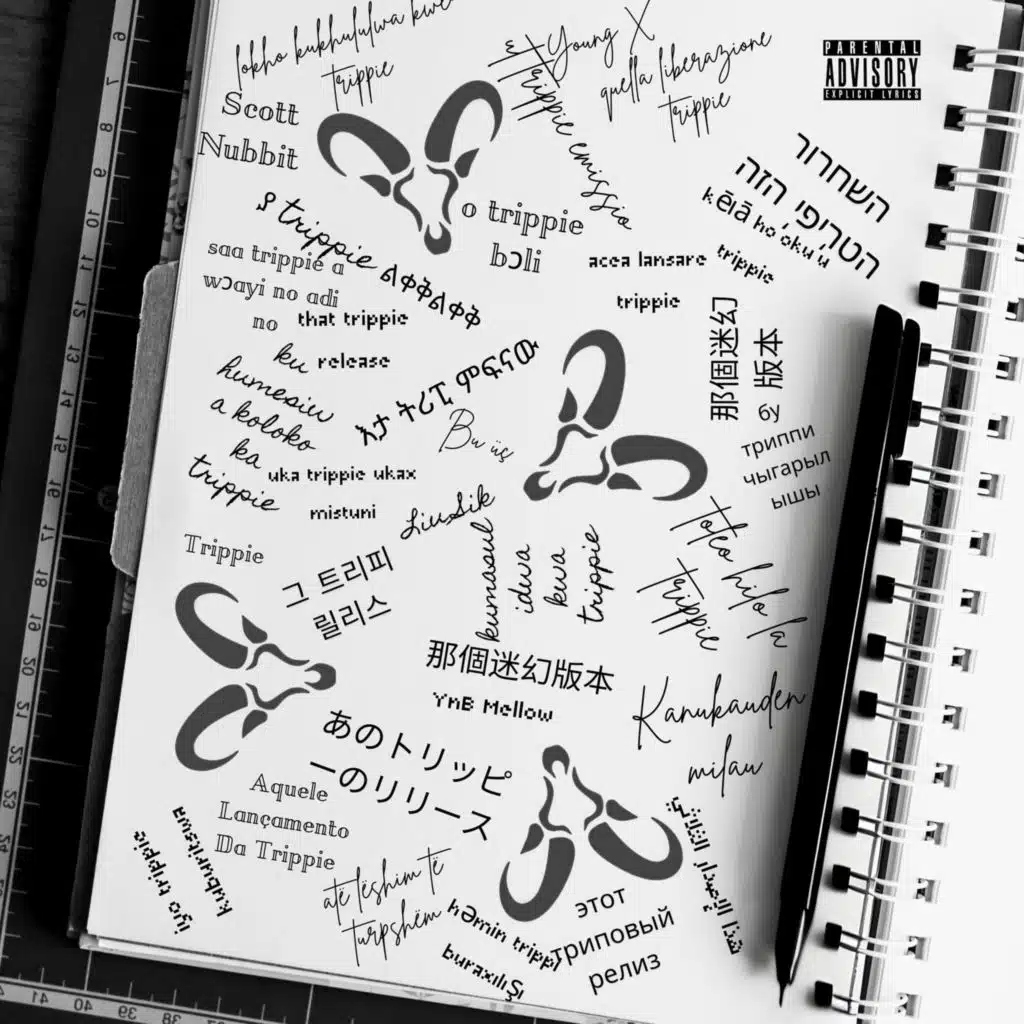 lokho kukhululwa kwe
trippie
Young X
quella liberazione
trippie
PARENTAL
ADVISORY
EXPLICIT LYRICS
Scott
Nubbit
trippie emissio
השחרור
הטריפי הזה
kēlā hoʻokuʻu
trippie
o trippie
bɔli
trippie ልቀቅልቀቅ
saa trippie a
wɔayi no adi
no
acea lansare
trippie
that trippie
release
ku
humesiw
a koloko
ka
trippie
እታ ትሪፒ ምፍናው
那個迷幻
版本
Bu üç
бу
триппи
чыгарыл
ышы
uka trippie ukax
mistuni
LiuSik
Trippie
그 트리피
릴리스
kumasul
idwa
kwa
trippie
Toteo hilo la
Trippie
那個迷幻版本
YnB Mellow
Kanukauden
milau
あのトリッピ
ーのリリース
Aquele
Lançamento
Da Trippie
kuburitswa
iyo trippie
atë lëshim të
turpshëm
həmin trippy
buraxılışı
этот
триповый
релиз
هذا الإصدار الثلاثي